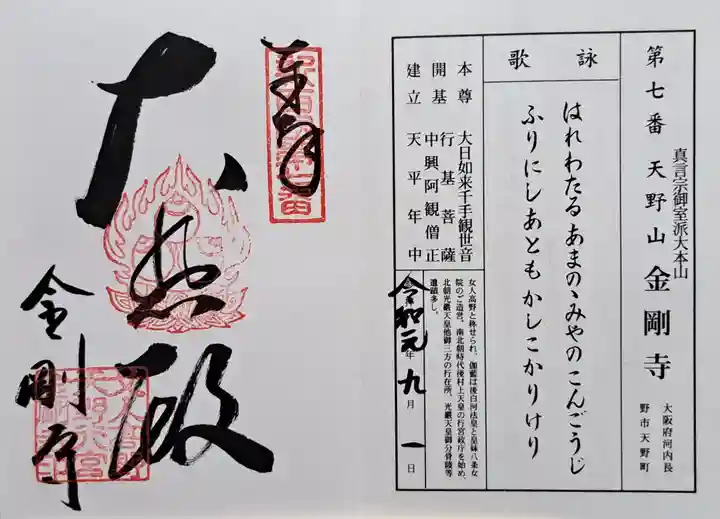 第七番 天野山 金剛寺
真言宗御室派大本山
大阪府河内長
野市天野町
詠歌
はれわたる あまのゝみやの こんごうじ
ふりにしあともかしこかりけり
本尊 大日如来千手観世音
開基 行基菩薩
中興阿観僧正
建立 天平年中
女人高野と称せられ、伽藍は後白河法皇と皇妹八条女
院のご造営、南北朝時代後村上天皇の行宮政庁を始め、
北朝光厳天皇他御三方の行在所、光厳天皇御分骨陵等
遺蹟多し。
令和元年九月一日
奉拝
大悲殿
金剛寺